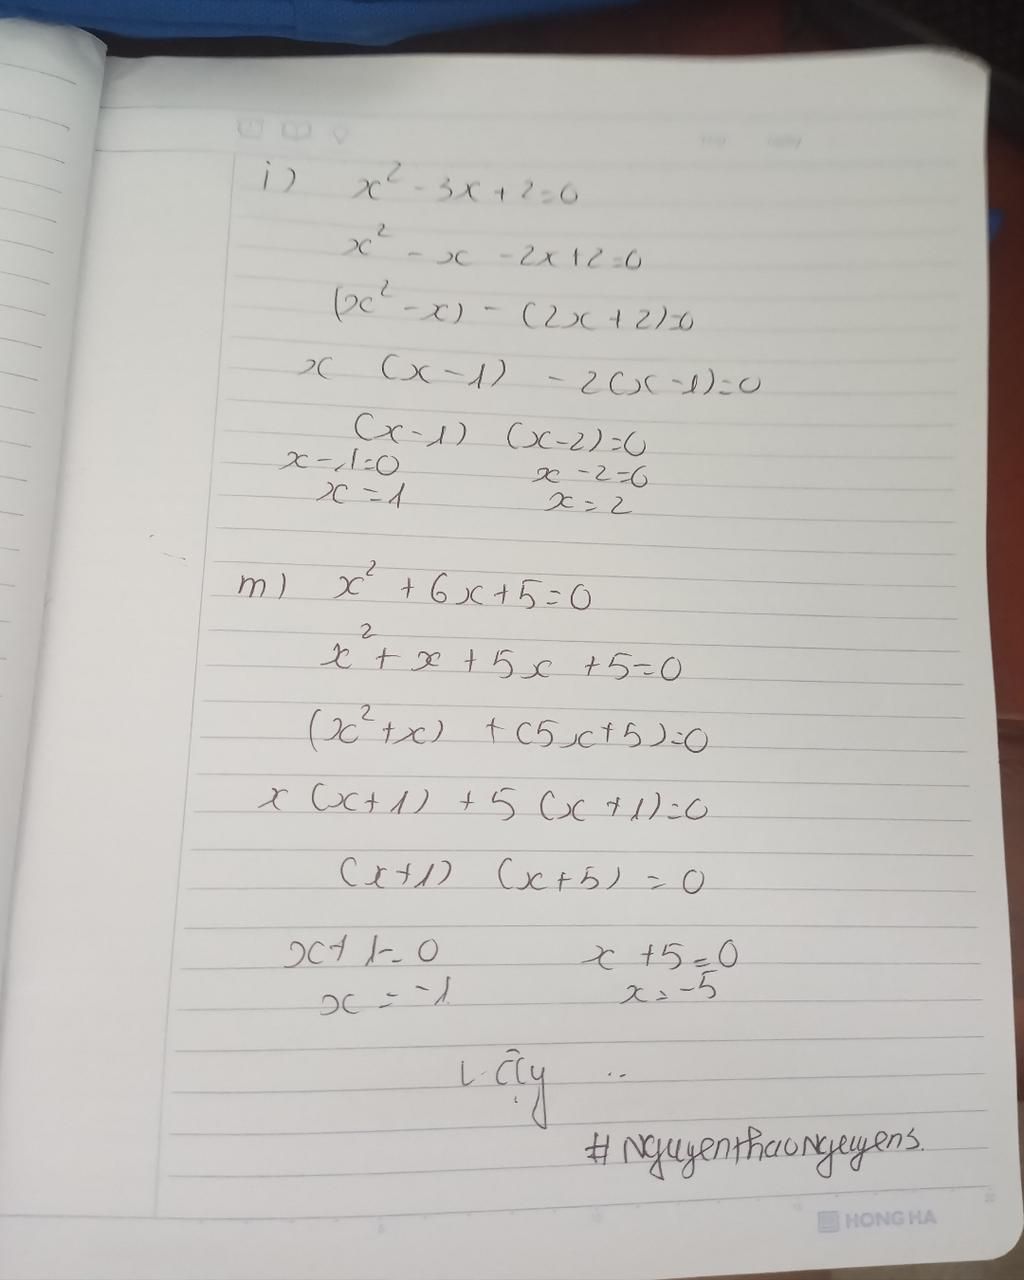 i) x² - 3x + 2 = 0
x² - x - 2x + 2 = 0
(x² - x) - (2x + 2) = 0
x (x - 1) - 2(x - 1) = 0
(x - 1) (x - 2) = 0
x - 1 = 0 x - 2 = 0
x = 1 x = 2
m) x² + 6x + 5 = 0
x² + x + 5x + 5 = 0
(x² + x) + (5x + 5) = 0
x (x + 1) + 5 (x + 1) = 0
(x + 1) (x + 5) = 0
x + 1 = 0 x + 5 = 0
x = -1 x = -5
HONG HA